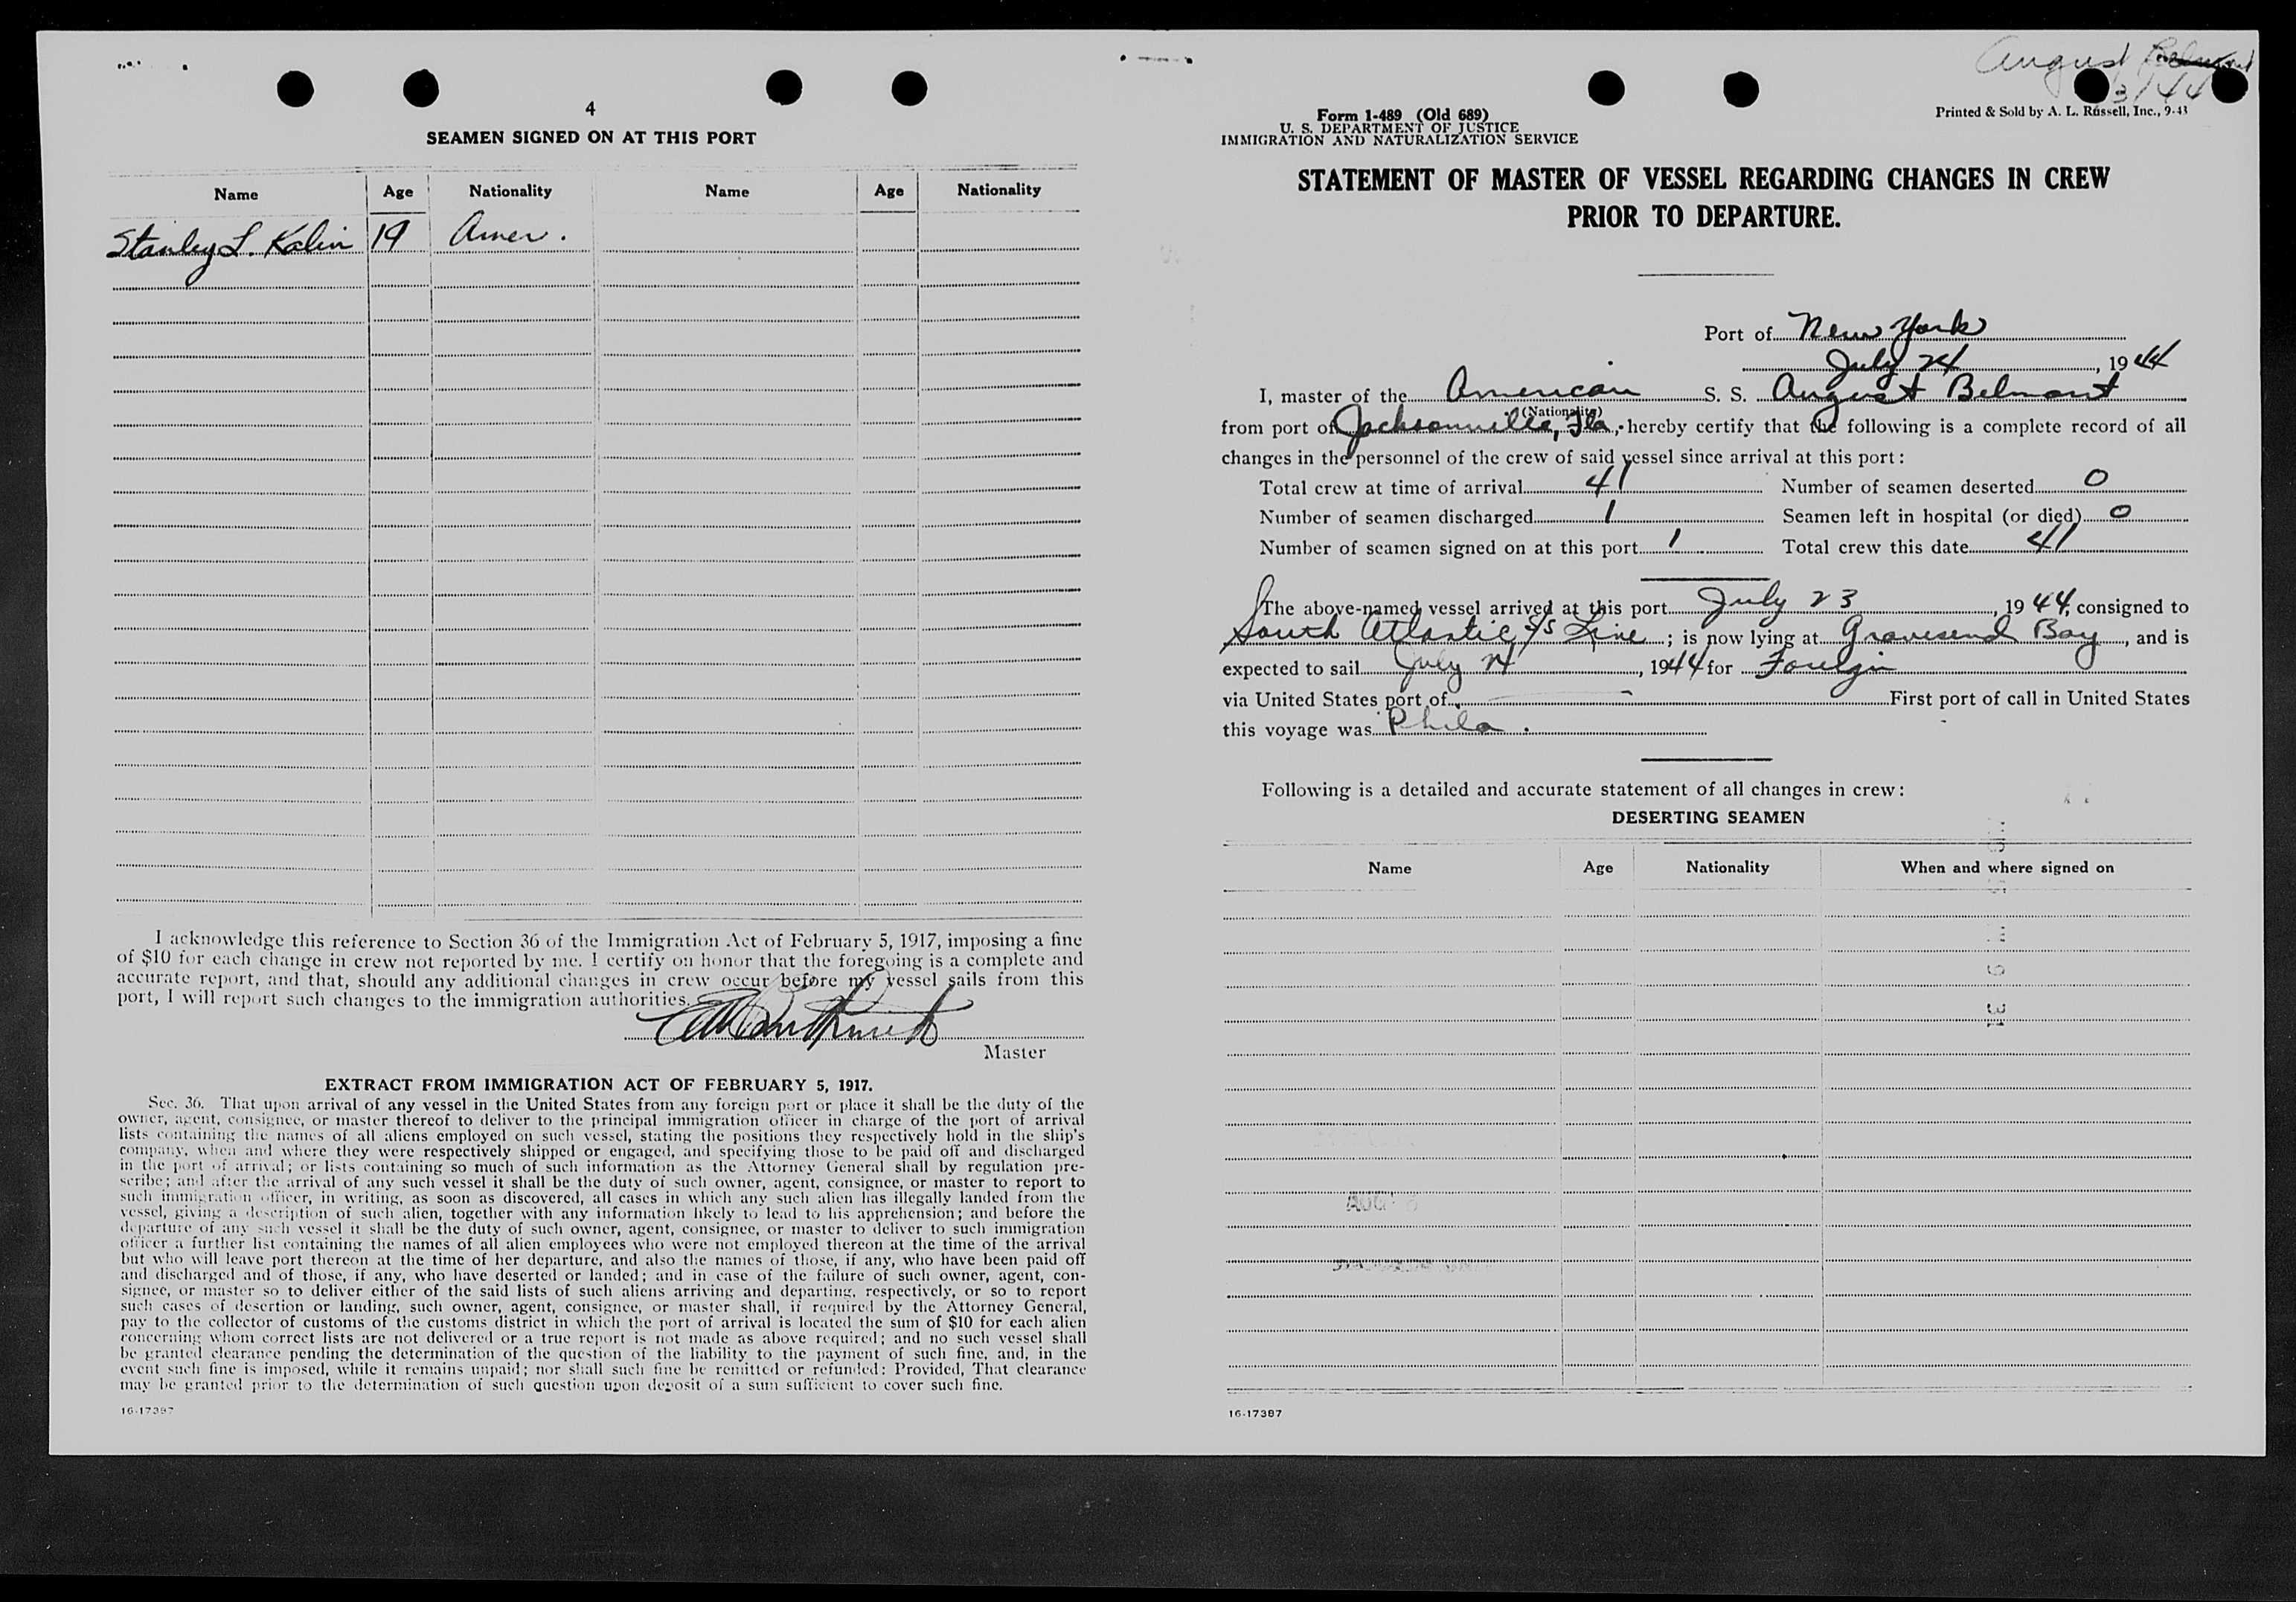 4
SEAMEN SIGNED ON AT THIS PORT
Name Age Nationality Name Age Nationality
Stanley L. Kalin 19 Amer.
I acknowledge this reference to Section 36 of the Immigration Act of February 5, 1917, imposing a fine
of $10 for each change in crew not reported by me. I certify on honor that the foregoing is a complete and
accurate report, and that, should any additional changes in crew occur before my vessel sails from this
port, I will report such changes to the immigration authorities.
Master
EXTRACT FROM IMMIGRATION ACT OF FEBRUARY 5, 1917.
Sec. 36. That upon arrival of any vessel in the United States from any foreign port or place it shall be the duty of the
owner, agent, consignee, or master thereof to deliver to the principal immigration officer in charge of the port of arrival
lists containing the names of all aliens employed on such vessel, stating the positions they respectively hold in the ship's
company, when and where they were respectively shipped or engaged, and specifying those to be paid off and discharged
in the port of arrival; or lists containing so much of such information as the Attorney General shall by regulation pre-
scribe; and after the arrival of any such vessel it shall be the duty of such owner, agent, consignee, or master to report to
such immigration officer, in writing, as soon as discovered, all cases in which any such alien has illegally landed from the
vessel, giving a description of such alien, together with any information likely to lead to his apprehension; and before the
departure of any such vessel it shall be the duty of such owner, agent, consignee, or master to deliver to such immigration
officer a further list containing the names of all alien employees who were not employed thereon at the time of the arrival
but who will leave port thereon at the time of her departure, and also the names of those, if any, who have been paid off
and discharged and of those, if any, who have deserted or landed; and in case of the failure of such owner, agent, con-
signee, or master so to deliver either of the said lists of such aliens arriving and departing, respectively, or so to report
such cases of desertion or landing, such owner, agent, consignee, or master shall, if required by the Attorney General,
pay to the collector of customs of the customs district in which the port of arrival is located the sum of $10 for each alien
concerning whom correct lists are not delivered or a true report is not made as above required; and no such vessel shall
be granted clearance pending the determination of the question of the liability to the payment of such fine, and, in the
event such fine is imposed, while it remains unpaid; nor shall such fine be remitted or refunded: Provided, That clearance
may be granted prior to the determination of such question upon deposit of a sum sufficient to cover such fine.
16-17387
August Belmont
Form I-489 (Old 689)
U. S. DEPARTMENT OF JUSTICE
IMMIGRATION AND NATURALIZATION SERVICE
Printed & Sold by A. L. Russell, Inc., 9-43
STATEMENT OF MASTER OF VESSEL REGARDING CHANGES IN CREW
PRIOR TO DEPARTURE.
Port of New York
July 24, 1944
I, master of the American S. S. August Belmont
(Nationality)
from port of Jacksonville, Fla, hereby certify that the following is a complete record of all
changes in the personnel of the crew of said vessel since arrival at this port:
Total crew at time of arrival 41 Number of seamen deserted 0
Number of seamen discharged 1 Seamen left in hospital (or died) 0
Number of seamen signed on at this port 1 Total crew this date 41
The above-named vessel arrived at this port July 23, 1944, consigned to
South Atlantic S/S Line; is now lying at Gravesend Bay, and is
expected to sail July 24, 1944 for Foreign
via United States port of — First port of call in United States
this voyage was Phila.
Following is a detailed and accurate statement of all changes in crew:
DESERTING SEAMEN
Name Age Nationality When and where signed on
AUG
16-17387